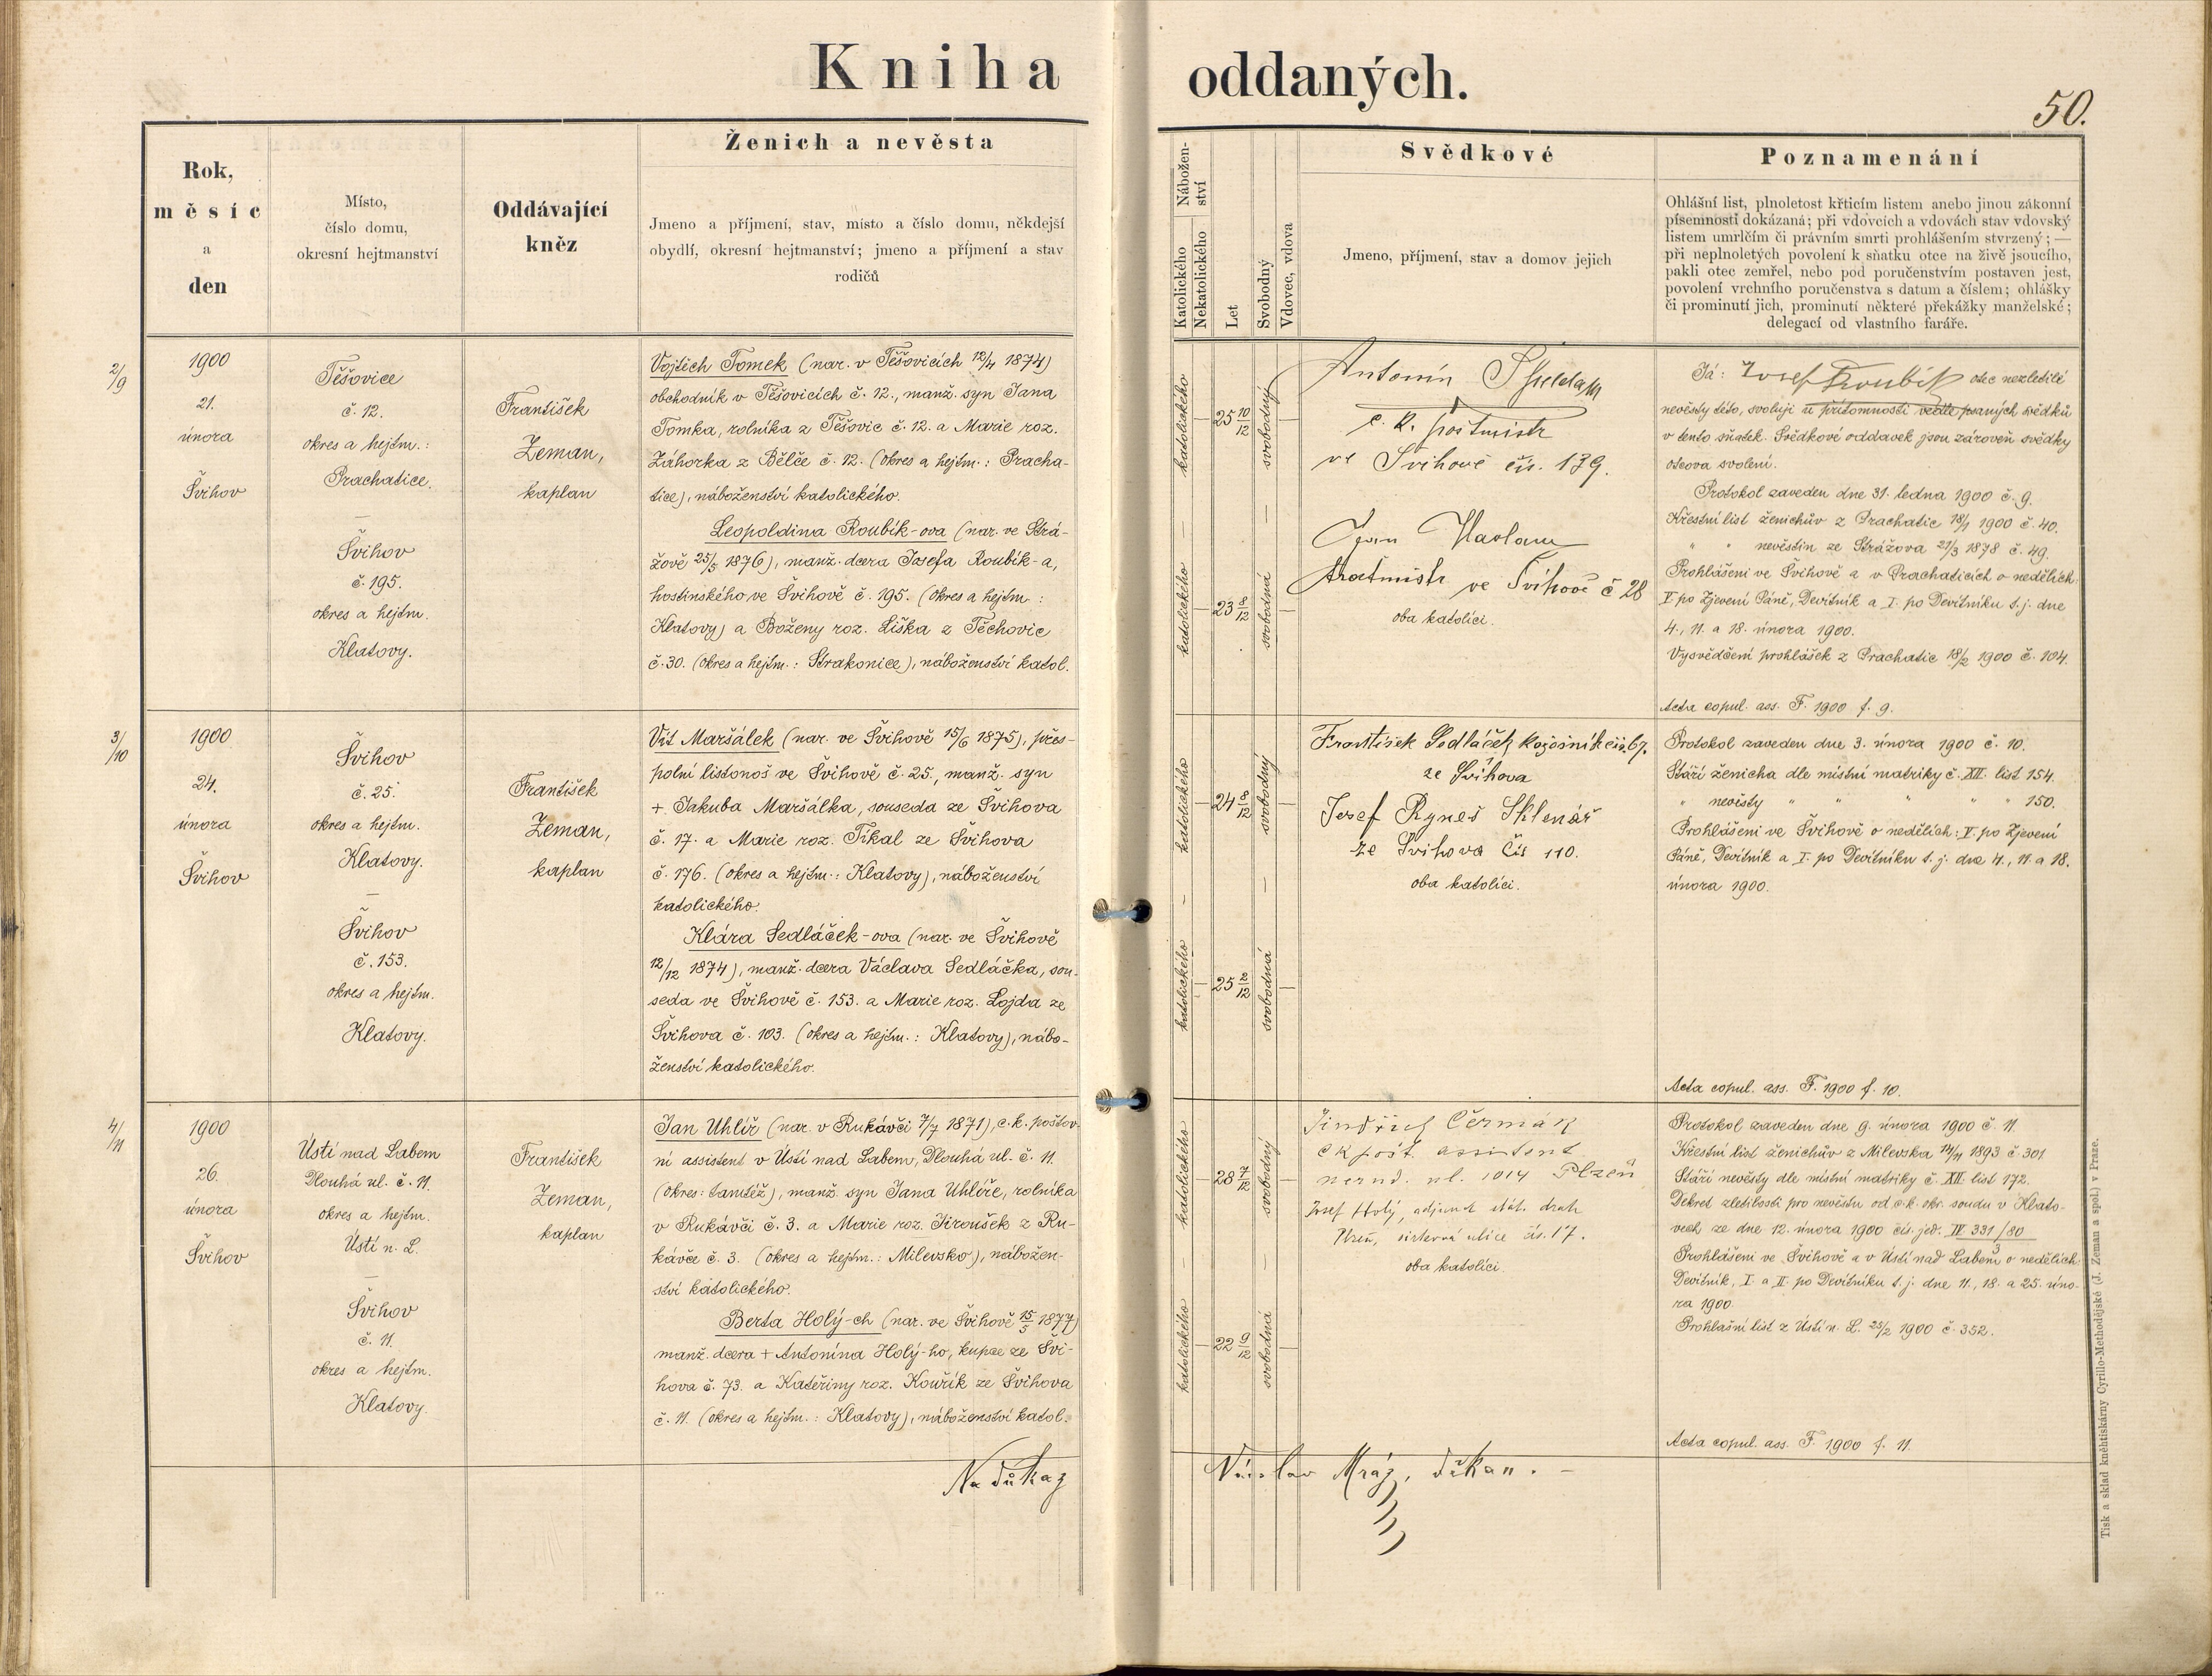 Kniha oddaných.
50.
Rok,
měsíc
a
den
Místo,
číslo domu,
okresní hejtmanství
Oddávající
kněz
Ženich a nevěsta
Jmeno a příjmení, stav, místo a číslo domu, někdejší
obydlí, okresní hejtmanství; jmeno a příjmení a stav
rodičů
Nábožen-
ství
Katolického
Nekatolického
Let
Svobodný
Vdovec, vdova
Svědkové
Jmeno, příjmení, stav a domov jejich
Poznamenání
Ohlášní list, plnoletost křticím listem anebo jinou zákonní
písemností dokázaná; při vdovcích a vdovách stav vdovský
listem umrlčím či právním smrti prohlášením stvrzený; —
při neplnoletých povolení k sňatku otce na živě jsoucího,
pakli otec zemřel, nebo pod poručenstvím postaven jest,
povolení vrchního poručenstva s datum a číslem; ohlášky
či prominutí jich, prominutí některé překážky manželské;
delegací od vlastního faráře.
2/9
1900
21.
února
Švihov
Těšovice
č. 12.
okres a hejtm.:
Prachatice.
—
Švihov
č. 195.
okres a hejtm.
Klatovy.
František
Zeman,
kaplan
Vojtěch Tomek (nar. v Těšovicích 12/4 1874)
obchodník v Těšovicích č. 12., manž. syn Jana
Tomka, rolníka z Těšovic č. 12. a Marie roz.
Záhorka z Bělče č. 12. (okres a hejtm.: Pracha-
tice), náboženství katolického.
Leopoldina Roubík-ova (nar. ve Strá-
žově 25/5 1876), manž. dcera Josefa Roubík-a,
hostinského ve Švihově č. 195. (okres a hejtm.:
Klatovy) a Boženy roz. Liška z Těchovic
č. 30. (okres a hejtm.: Strakonice), náboženství katol.
katolického
—
25 10/12
svobodný
—
katolického
—
23 8/12
svobodná
—
Antonín
c. k. poštmistr
ve Švihově čís. 139.
Jan
ve Švihově č 28
oba katolíci.
Já: Josef Roubík otec nezletilé
nevěsty této, svoluji u přítomnosti vedle psaných svědků
v tento sňatek. Svědkové oddavek jsou zároveň svědky
otcova svolení.
Protokol zaveden dne 31. ledna 1900 č. 9.
Křestní list ženichův z Prachatic 18/1 1900 č. 40.
" " nevěstin ze Strážova 21/3 1878 č. 49.
Prohlášeni ve Švihově a v Prachaticích o nedělích:
V po Zjevení Páně, Devítník a I. po Devítníku t. j. dne
4., 11. a 18. února 1900.
Vysvědčení prohlášek z Prachatic 18/2 1900 č. 104.
Acta copul. ass. F. 1900 f. 9.
3/10
1900
24.
února
Švihov
Švihov
č. 25.
okres a hejtm.
Klatovy.
—
Švihov
č. 153.
okres a hejtm.
Klatovy.
František
Zeman,
kaplan
Vít Maršálek (nar. ve Švihově 15/6 1875), přes-
polní listonoš ve Švihově č. 25., manž. syn
+ Jakuba Maršálka, souseda ze Švihova
č. 17. a Marie roz. Tikal ze Švihova
č. 176. (okres a hejtm.: Klatovy), náboženství
katolického.
Klára Sedláček-ova (nar. ve Švihově
12/12 1874), manž. dcera Václava Sedláčka, sou-
seda ve Švihově č. 153. a Marie roz. Lojda ze
Švihova č. 103. (okres a hejtm.: Klatovy), nábo-
ženství katolického.
katolického
—
24 8/12
svobodný
—
katolického
—
25 2/12
svobodná
—
František Sedláček kožešník čís. 67.
ze Švihova
Josef Ryneš Sklenář
ze Švihova čís 110.
oba katolíci.
Protokol zaveden dne 3. února 1900 č. 10.
Stáří ženicha dle místní matriky č. XII. list 154.
" nevěsty " " " " " 150.
Prohlášeni ve Švihově o nedělích: V. po Zjevení
Páně, Devítník a I. po Devítníku t. j. dne 4., 11. a 18.
února 1900.
Acta copul. ass. F. 1900 f. 10.
4/11
1900
26.
února
Švihov
Ústí nad Labem
Dlouhá ul. č. 11.
okres a hejtm.
Ústí n. L.
—
Švihov
č. 11.
okres a hejtm.
Klatovy.
František
Zeman,
kaplan
Jan Uhlíř (nar. v Rukávči 7/7 1871), c. k. poštov-
ní assistent v Ústí nad Labem, Dlouhá ul. č. 11.
(okres: tamtéž), manž. syn Jana Uhlíře, rolníka
v Rukávči č. 3. a Marie roz. Jiroušek z Ru-
kávče č. 3. (okres a hejtm.: Milevsko), nábožen-
ství katolického.
Berta Holý-ch (nar. ve Švihově 15/5 1877)
manž. dcera + Antonína Holý-ho, kupce ze Švi-
hova č. 73. a Kateřiny roz. Kouřík ze Švihova
č. 11. (okres a hejtm.: Klatovy), náboženství katol.
katolického
—
28 7/12
svobodný
—
katolického
—
22 9/12
svobodná
—
Jindřich Čermák
ck pošt. assistent
nerud. ul. 1014 Plzeň
Josef Holý, adjunkt stát. drah
Plzeň, ulice čís. 17.
oba katolíci.
Protokol zaveden dne 9. února 1900 č. 11
Křestní list ženichův z Milevska 14/11 1893 č. 301
Stáří nevěsty dle místní matriky č. XII. list 172.
Dekret zletilosti pro nevěstu od c. k. okr. soudu v Klato-
vech ze dne 12. února 1900 čís. jed. IV 331/80
3
Prohlášeni ve Švihově a v Ústí nad Labem o nedělích:
Devítník, I. a II. po Devítníku t. j. dne 11., 18. a 25. úno-
ra 1900.
Prohlašní list z Ústí n. L. 25/2 1900 č. 352.
Acta copul. ass. F. 1900 f. 11.
Na důkaz Václav Mráz, děkan. —
Tisk a sklad kněhtiskárny Cyrillo-Methodějské (J. Zeman a spol.) v Praze.